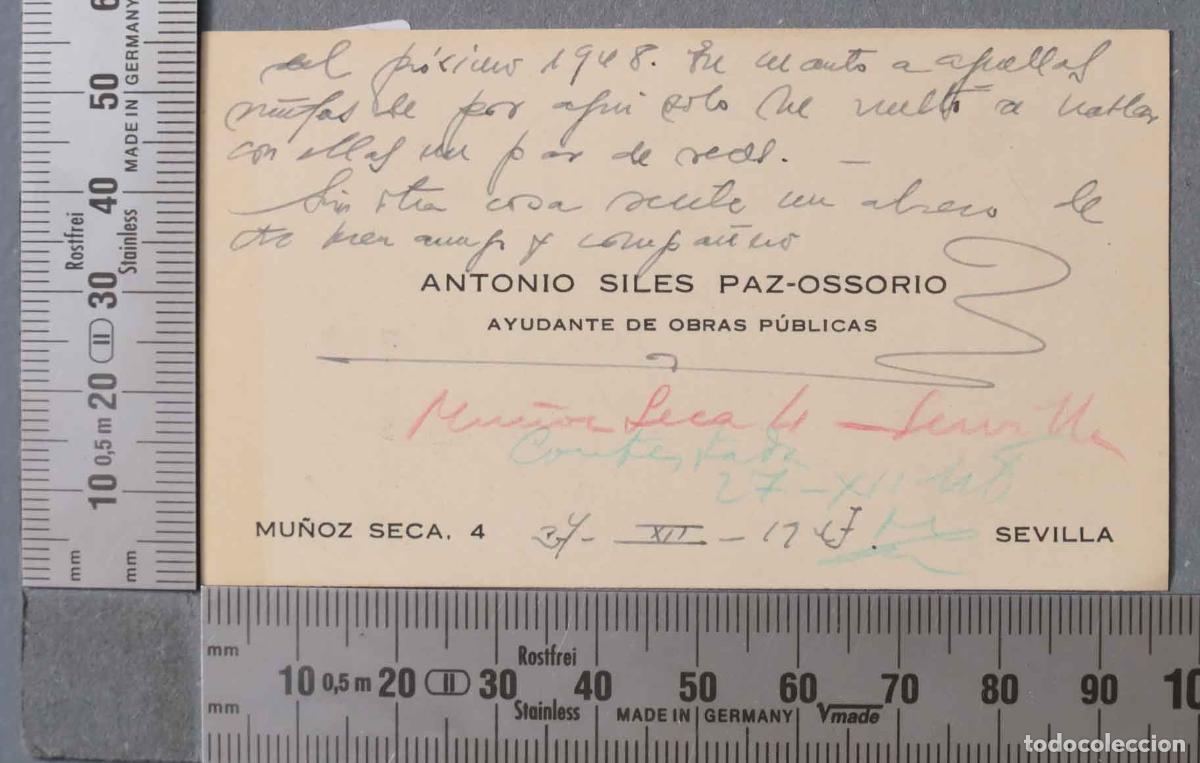 el próximo 1948. En cuanto a aquellas
niñas de por aquí solo he vuelto a hablar
con ellas un par de veces. —
Sin otra cosa recibe un abrazo de
tu buen amigo y compañero
ANTONIO SILES PAZ-OSSORIO
AYUDANTE DE OBRAS PÚBLICAS
Muñoz Seca 4 — Sevilla
Contestada
27-XII-48
MUÑOZ SECA, 4
- XII - 1947.
SEVILLA
mm
10 0,5 m 20 II 30 40 50 6
Rostfrei
Stainless
MADE IN GERMANY
mm
mm
10 0,5 m 20 II 30 40 50 60 70 80 90 10
mm
Rostfrei
Stainless
MADE IN GERMANY
Vmade
todocoleccion